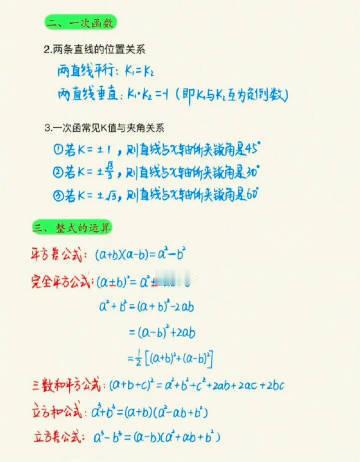 二、一次函数
2.两条直线的位置关系
两直线平行：K₁=K₂
两直线垂直：K₁·K₂=-1（即K₁与K₂互为负倒数）
3.一次函常见K值与夹角关系
①若K=±1，则直线与x轴所夹锐角是45°
②若K=±√3/3，则直线与x轴所夹锐角是30°
③若K=±√3，则直线与x轴所夹锐角是60°
三、整式的运算
平方差公式：(a+b)(a-b)=a²-b²
完全平方公式：(a±b)²=a²±
a²+b²=(a+b)²-2ab
=(a-b)²+2ab
=½[(a+b)²+(a-b)²]
三数和平方公式：(a+b+c)²=a²+b²+c²+2ab+2ac+2bc
立方和公式：a³+b³=(a+b)(a²-ab+b²)
立方差公式：a³-b³=(a-b)(a²+ab+b²)